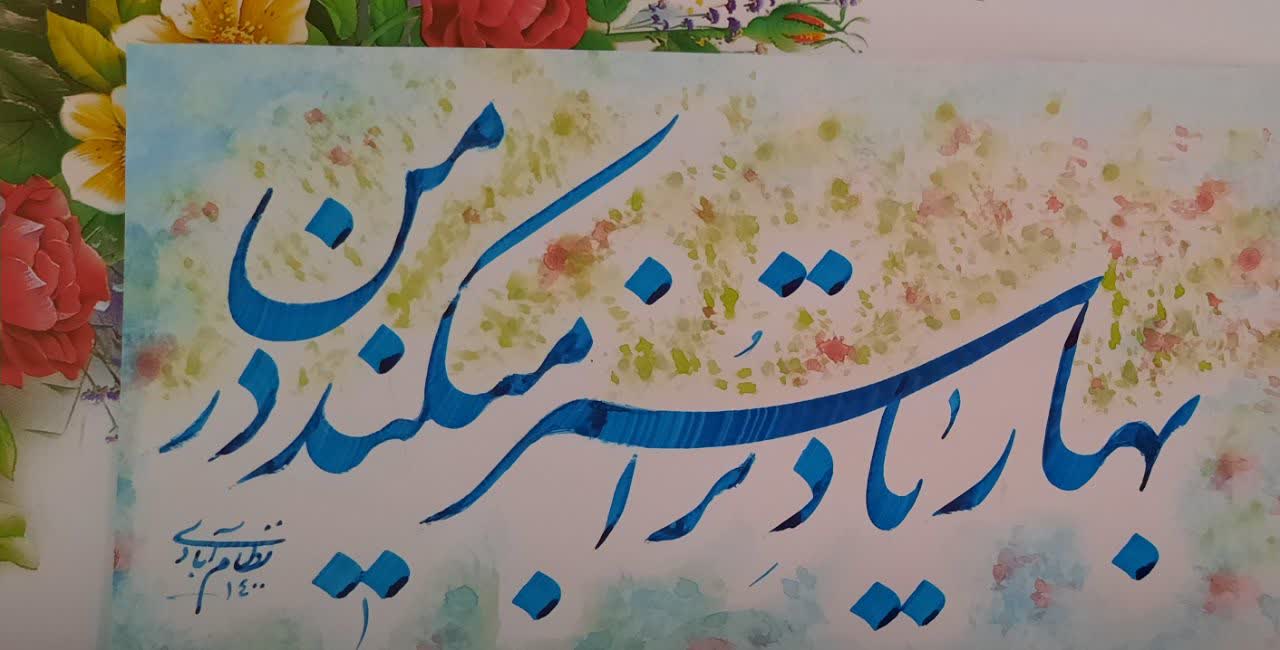 بهار یادِ تُرا سبز میکند در من
نظام‌آبادی
۱۴۰۰